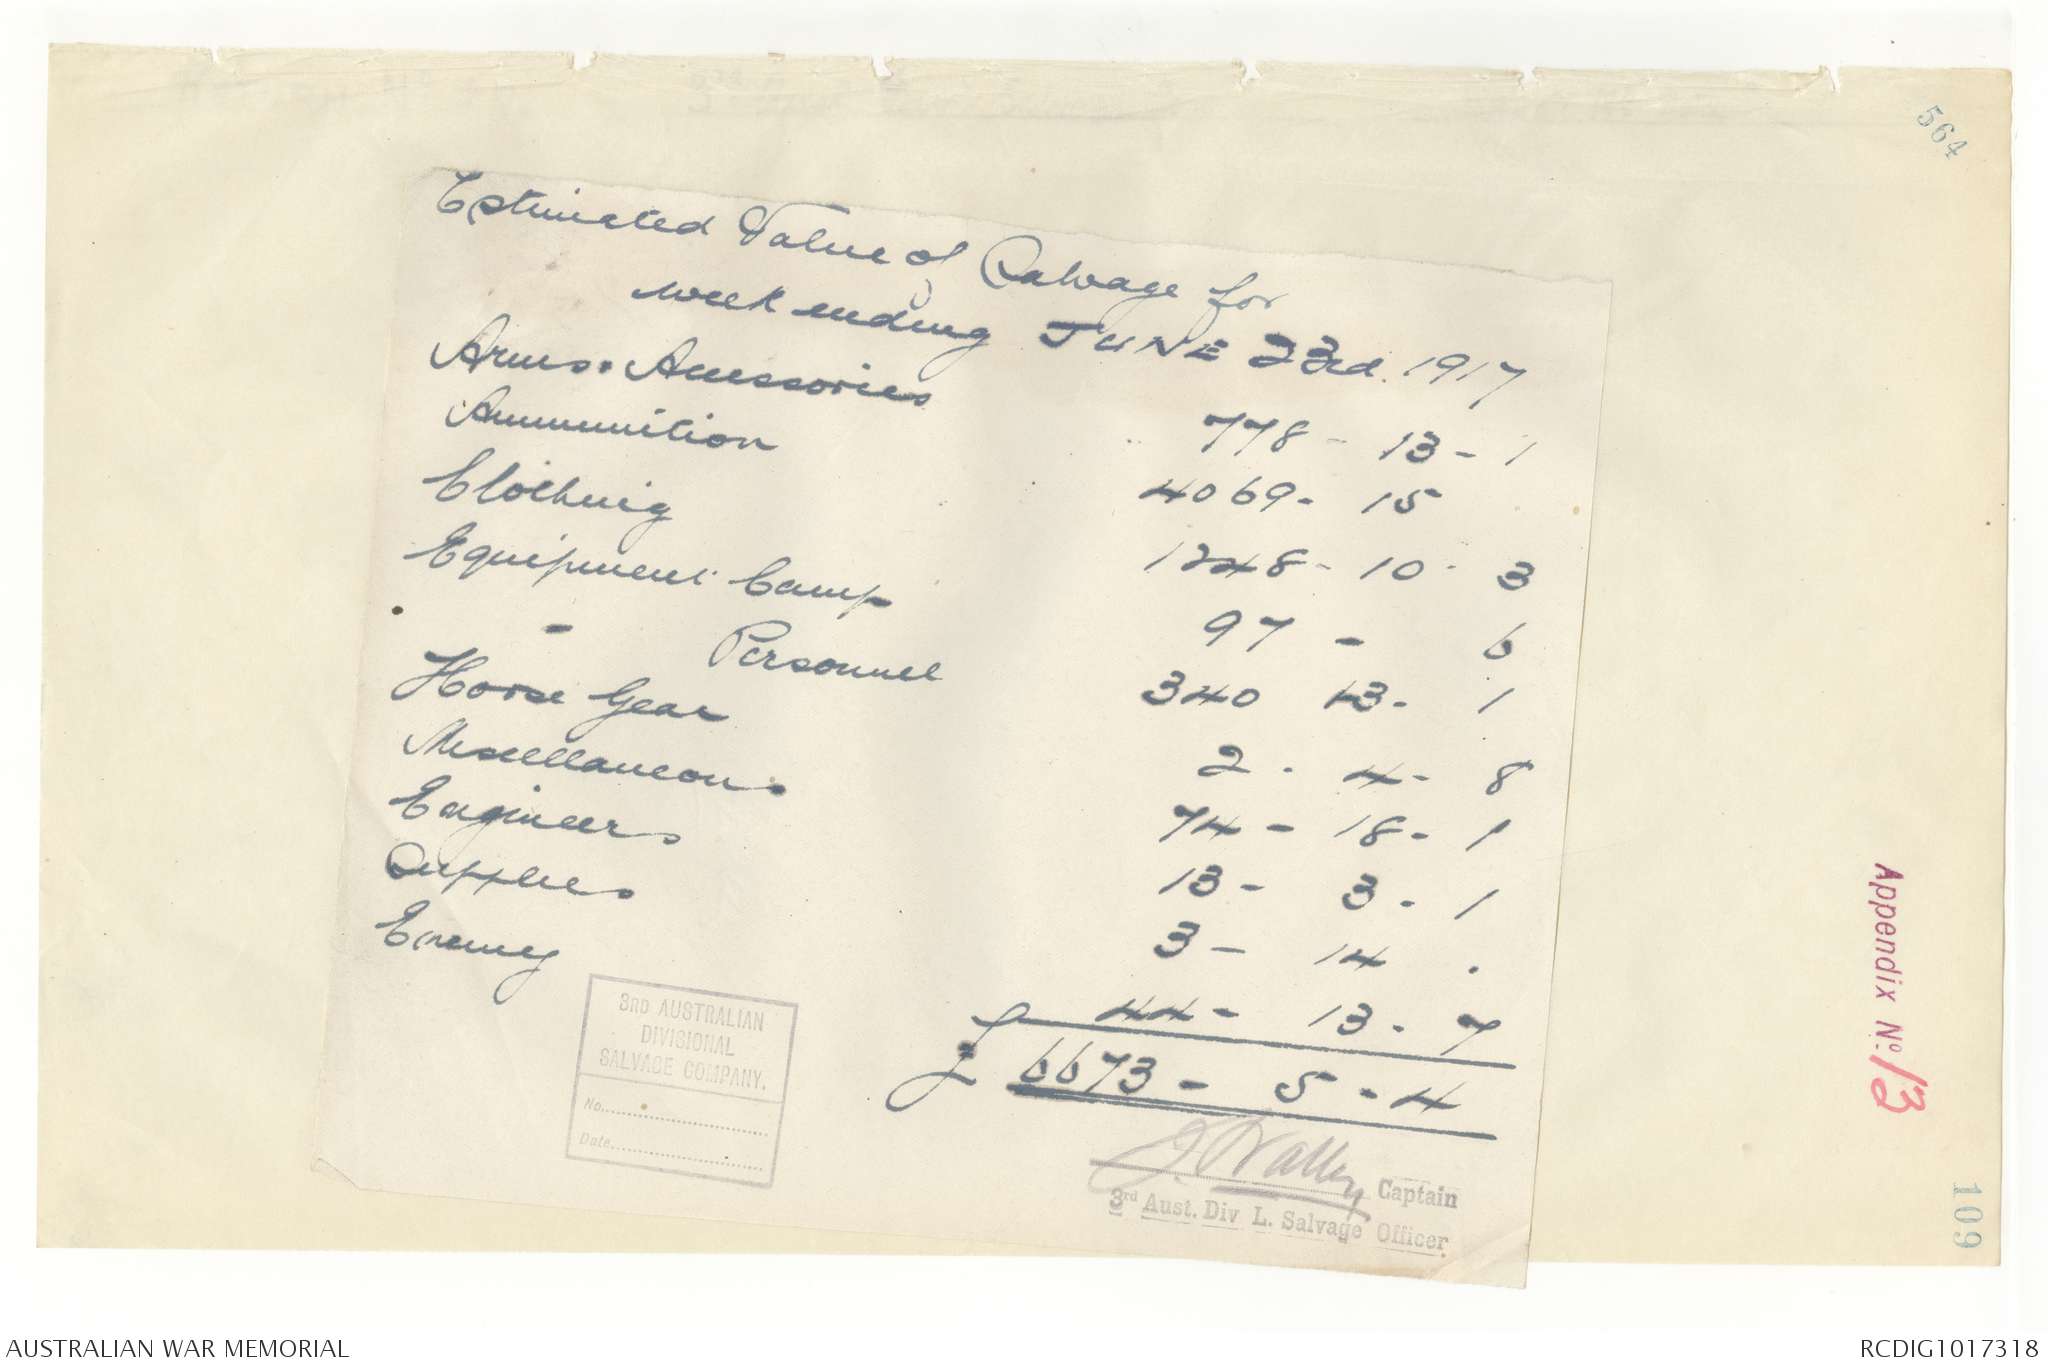 564
Estimated Value of Salvage for
week ending JUNE 23rd. 1917
Arms & Accessories 778 - 13 - 1
Ammunition 4069 - 15
Clothing 1248 - 10 - 3
Equipment Camp 97 - 6
- Personnel 340 13 - 1
Horse Gear 2 - 4 - 8
Miscellaneous 74 - 18 - 1
Engineers 13 - 3 - 1
Supplies 3 - 14 .
Enemy 44 - 13 - 7
£ 6673 - 5 - 4
3RD AUSTRALIAN
DIVISIONAL
SALVAGE COMPANY.
No.
Date
Captain
3rd Aust. Div L. Salvage Officer.
Appendix No. 13
109
AUSTRALIAN WAR MEMORIAL
RCDIG1017318